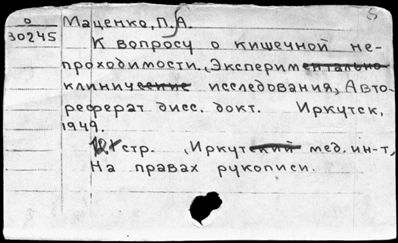 о Маценко, П. А.
30245
К вопросу о кишечной не-
проходимости. Экспериментально-
клинические исследования. Авто-
реферат дисс. докт. Иркутск,
1949.
стр. (Иркутский мед. ин-т,
На правах рукописи.